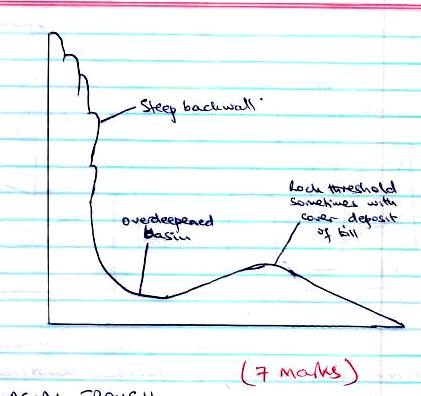 Steep backwall
Rock threshold
sometimes with
cover deposit
of till
overdeepened
basin
(7 marks)
TROUGH